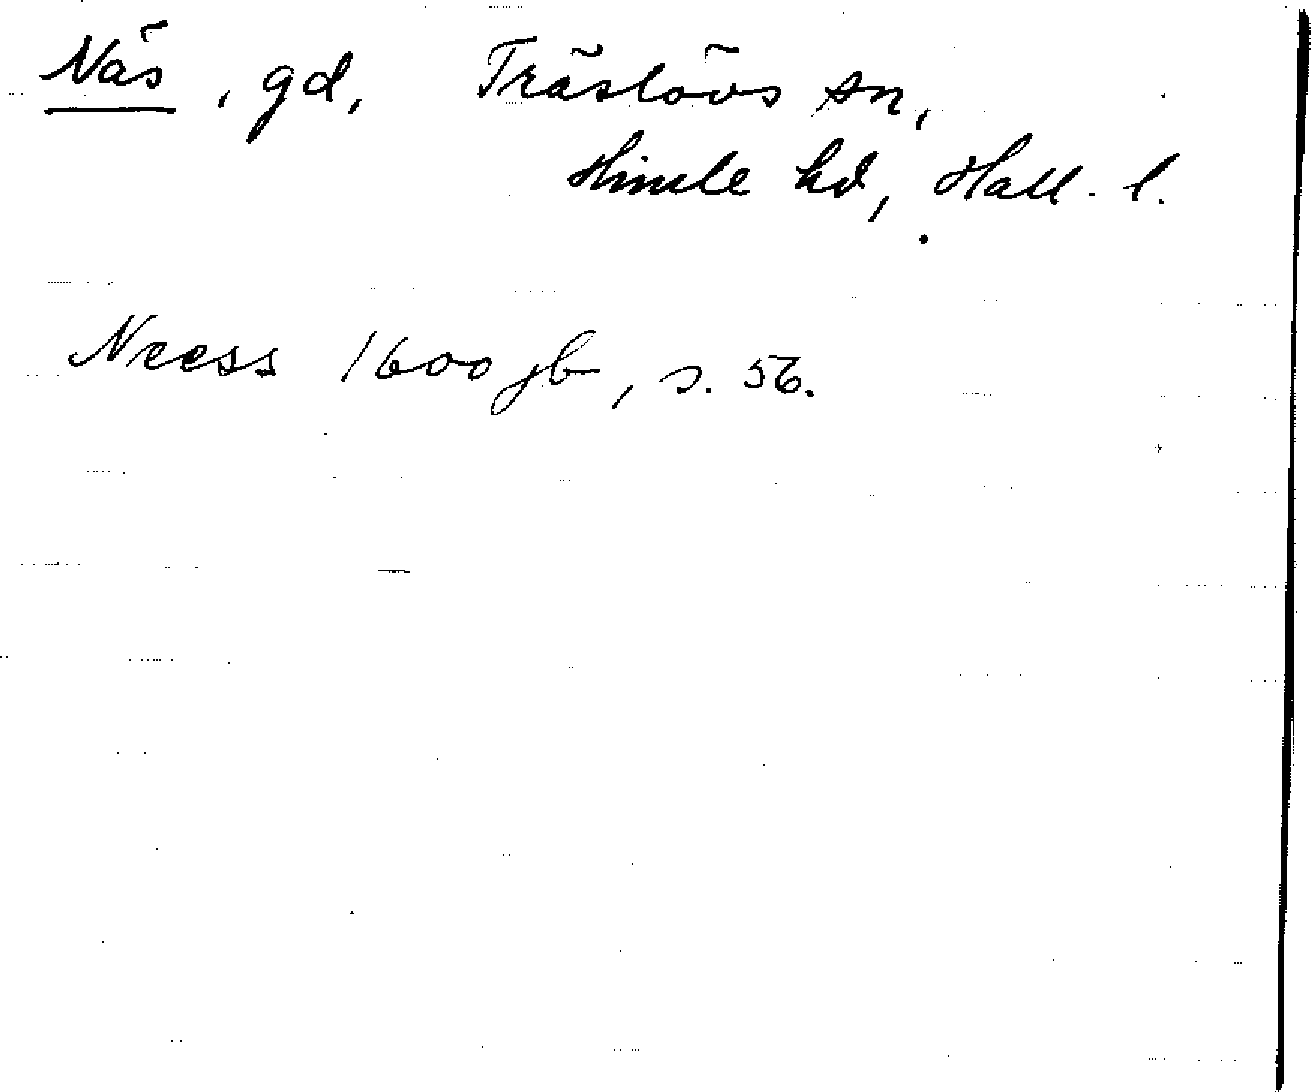 Näs, gd, Träslövs sn,
Himle hd, Hall. l.
Neess 1600 jb, s. 56.